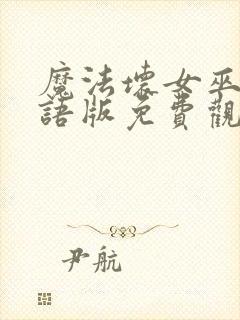 魔法壞女巫
語版免費觀
尹航